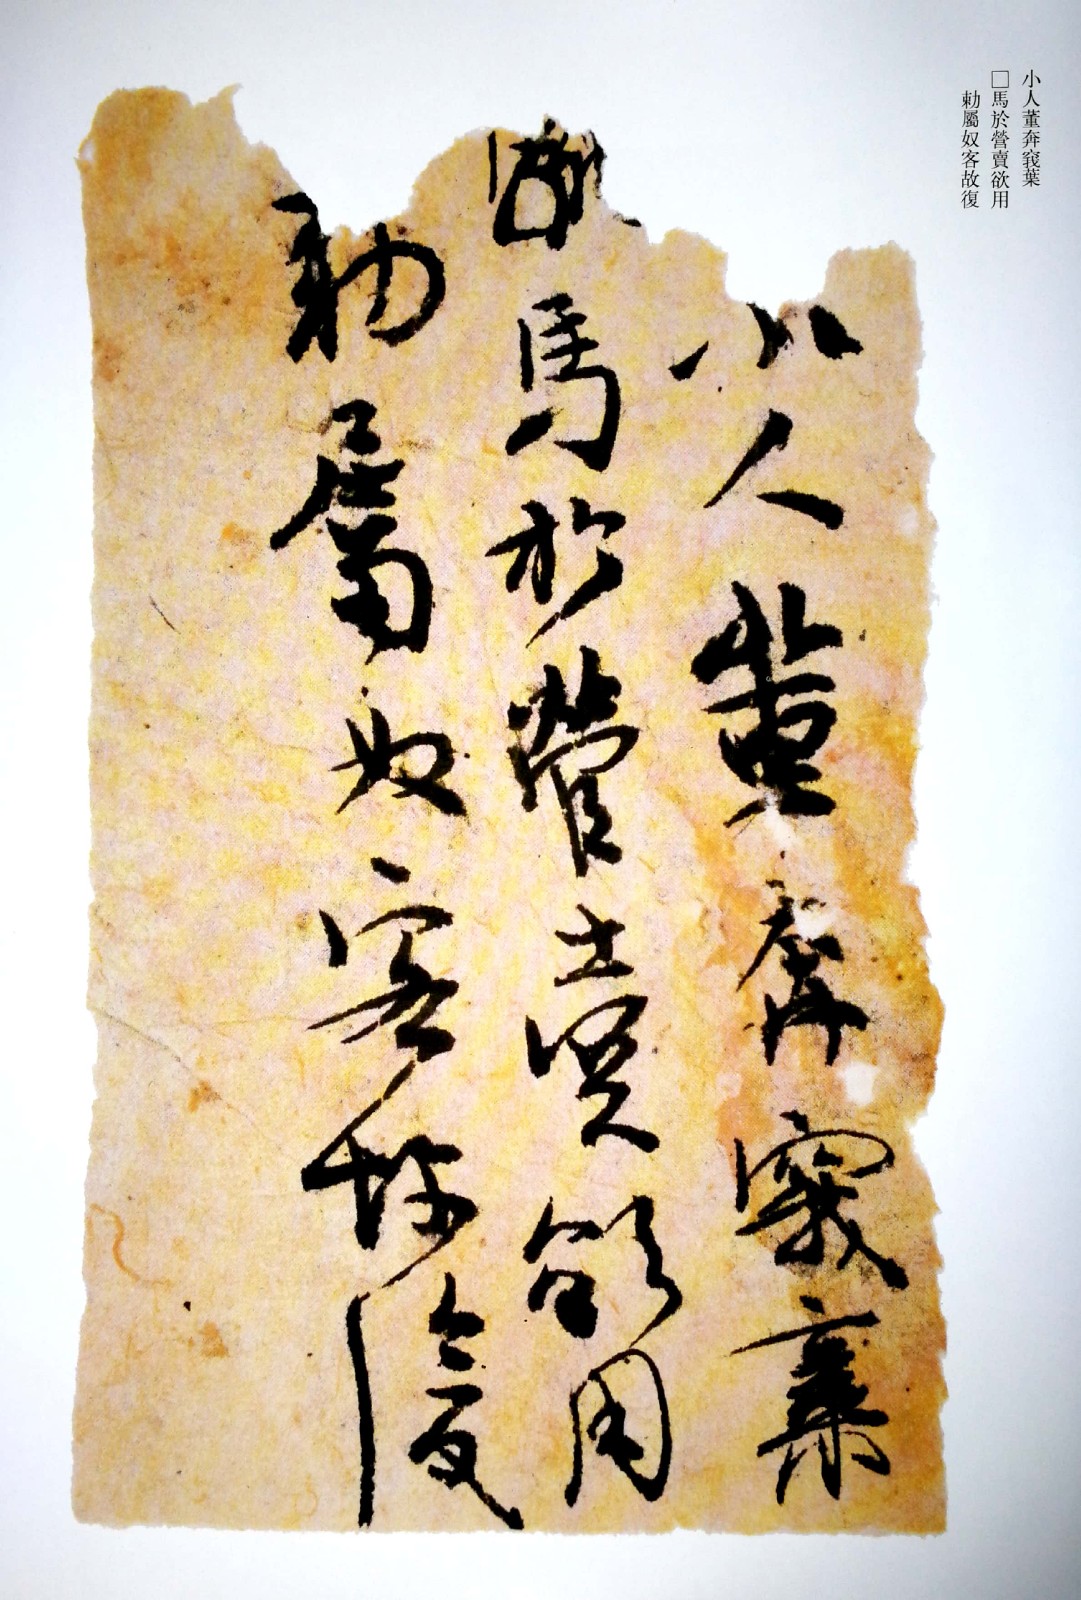 小人董奔䆮葉
□馬於營賣欲用
勅屬奴客故復
小人董奔䆮葉
馬於營賣欲用
勅屬奴客故復